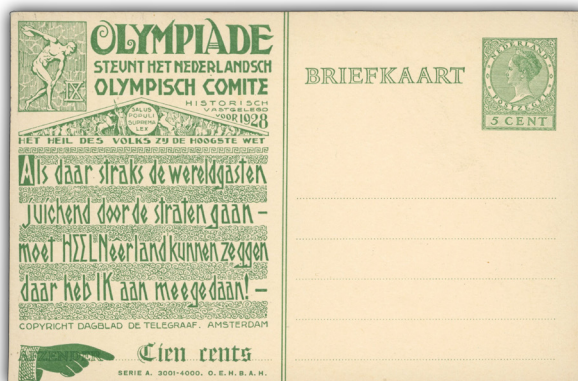 OLYMPIADE
STEUNT HET NEDERLANDSCH
OLYMPISCH COMITE
HISTORISCH
VASTGELEGD
VOOR 1928
IX
SALUS
POPULI
SUPREMA
LEX
HET HEIL DES VOLKS ZIJ DE HOOGSTE WET
Als daar straks de wereldgasten
juichend door de straten gaan –
moet HEEL Neerland kunnen zeggen
daar heb IK aan meegedaan! –
COPYRIGHT DAGBLAD DE TELEGRAAF. AMSTERDAM
AFZENDER
Tien cents
SERIE A. 3001-4000. O. E. H. B. A. H.
BRIEFKAART
NEDERLAND
5 CENT